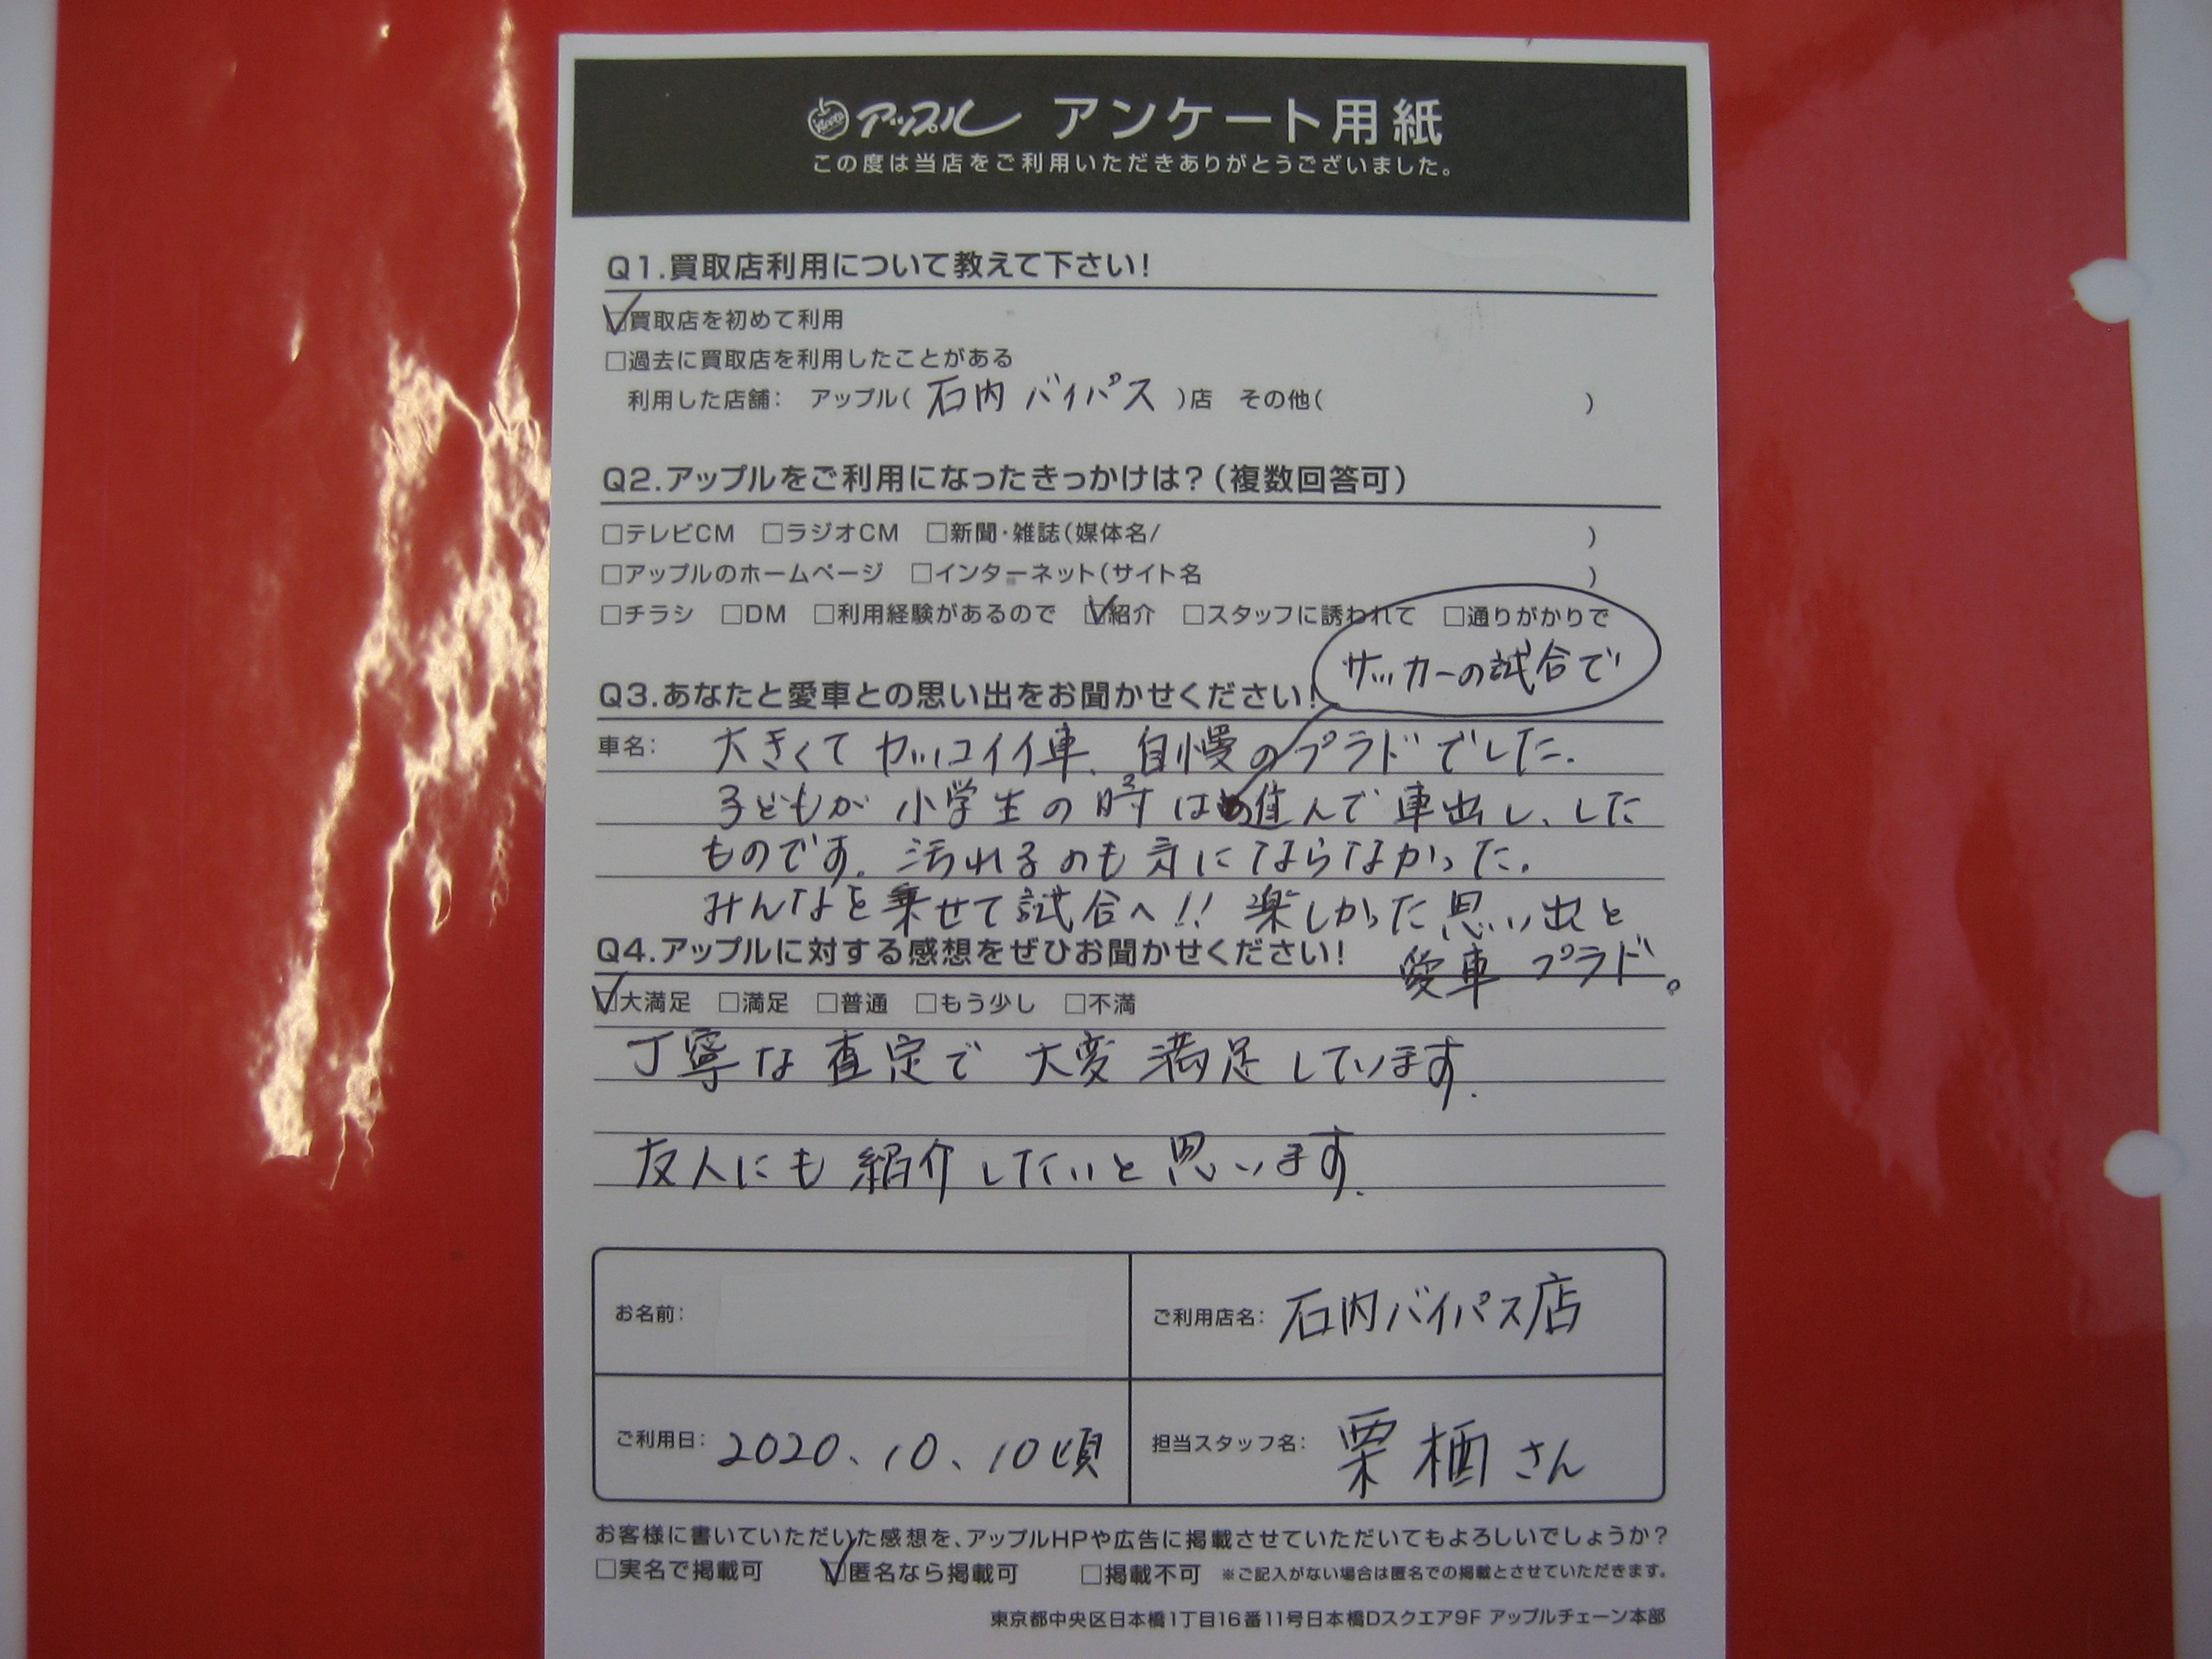 アップル アンケート用紙
この度は当店をご利用いただきありがとうございました。
Q1.買取店利用について教えて下さい!
☑買取店を初めて利用
□過去に買取店を利用したことがある
利用した店舗: アップル(石内バイパス)店 その他( )
Q2.アップルをご利用になったきっかけは?(複数回答可)
□テレビCM □ラジオCM □新聞・雑誌(媒体名/ )
□アップルのホームページ □インターネット(サイト名 )
□チラシ □DM □利用経験があるので ☑紹介 □スタッフに誘われて □通りがかりで
サッカーの試合で
Q3.あなたと愛車との思い出をお聞かせください!
車名: 大きくてカッコイイ車、自慢のプラドでした.
子どもが小学生の時は進んで車出し、した
ものです。汚れるのも気にならなかった.
みんなを乗せて試合へ!! 楽しかった思い出と
愛車プラド。
Q4.アップルに対する感想をぜひお聞かせください!
☑大満足 □満足 □普通 □もう少し □不満
丁寧な査定で大変満足しています.
友人にも紹介したいと思います.
お名前:
ご利用店名: 石内バイパス店
ご利用日: 2020、10、10頃
担当スタッフ名: 栗栖さん
お客様に書いていただいた感想を、アップルHPや広告に掲載させていただいてもよろしいでしょうか?
□実名で掲載可 ☑匿名なら掲載可 □掲載不可 ※ご記入がない場合は匿名での掲載とさせていただきます。
東京都中央区日本橋1丁目16番11号日本橋Dスクエア9F アップルチェーン本部